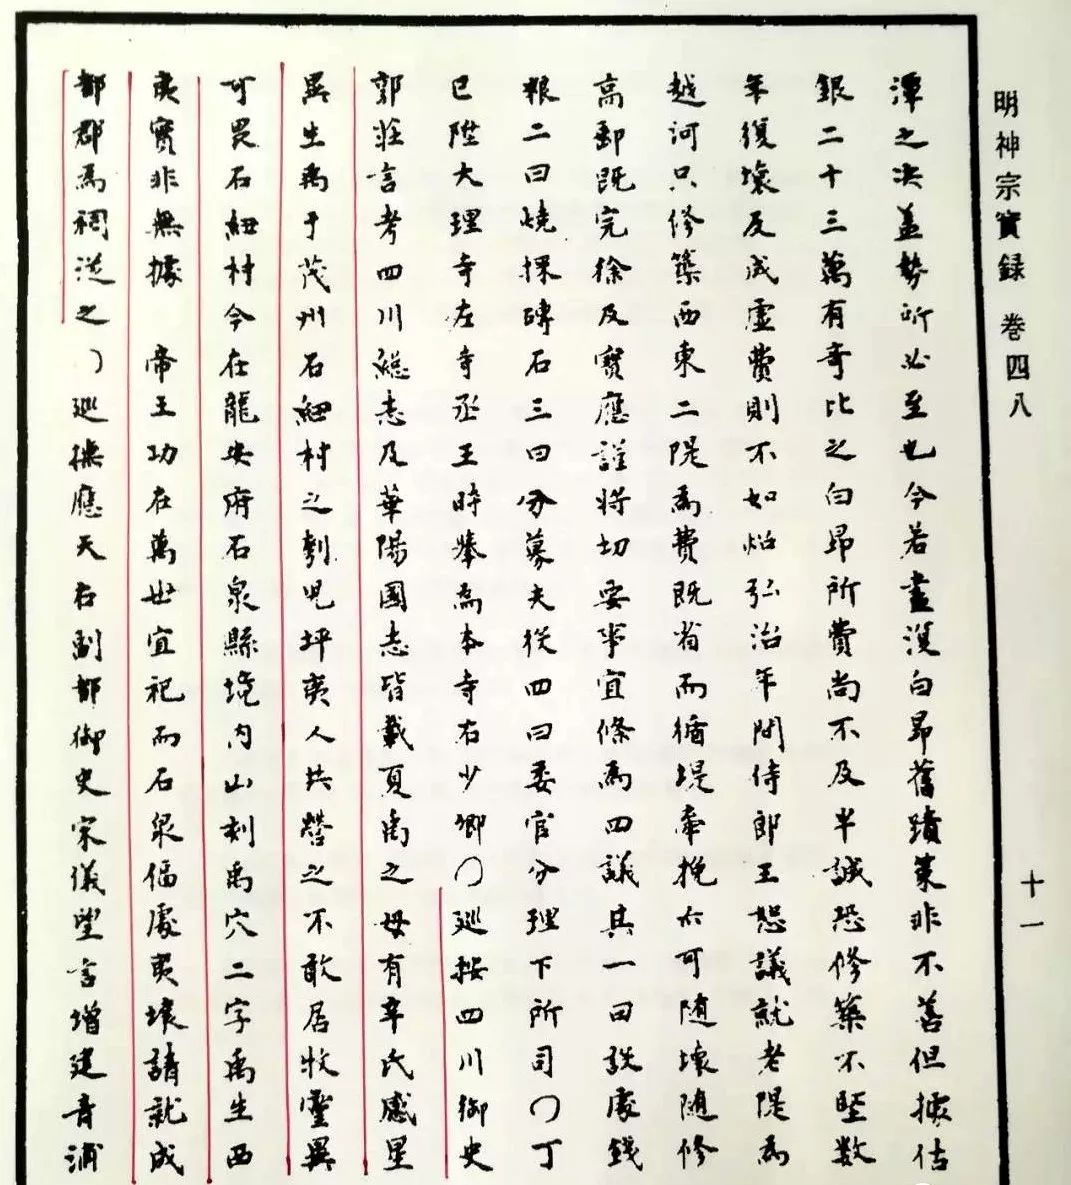 明神宗實録 卷四八
十一
潭之决盖勢所必至也今若盡没白昂舊蹟策非不善但據估
銀二十三萬有奇比之白昂所費尚不及半誠恐修築不堅数
年復壞反成虚費則不如照弘治年間侍郎王恕議就老隄為
越河只修築西東二隄為費既省而循堤牽挽亦可随壞随修
高郵既完徐及寳應謹将切要事宜條為四議其一曰議處錢
粮二曰燒採磚石三曰分募夫役四曰委官分理下所司〇丁
巳陞大理寺左寺丞王時舉為本寺右少卿〇巡按四川御史
郭莊言考四川總志及華陽國志皆載夏禹之母有辛氏感星
異生禹于茂州石紐村之刳児坪夷人共營之不敢居牧靈異
可畏石紐村今在龍安府石泉縣境内山刺禹穴二字禹生西
夷實非無據 帝王功在萬世宜祀而石泉偪處夷壤請就成
都郡為祠從之〇巡撫應天右副都御史宋儀望言增建青浦